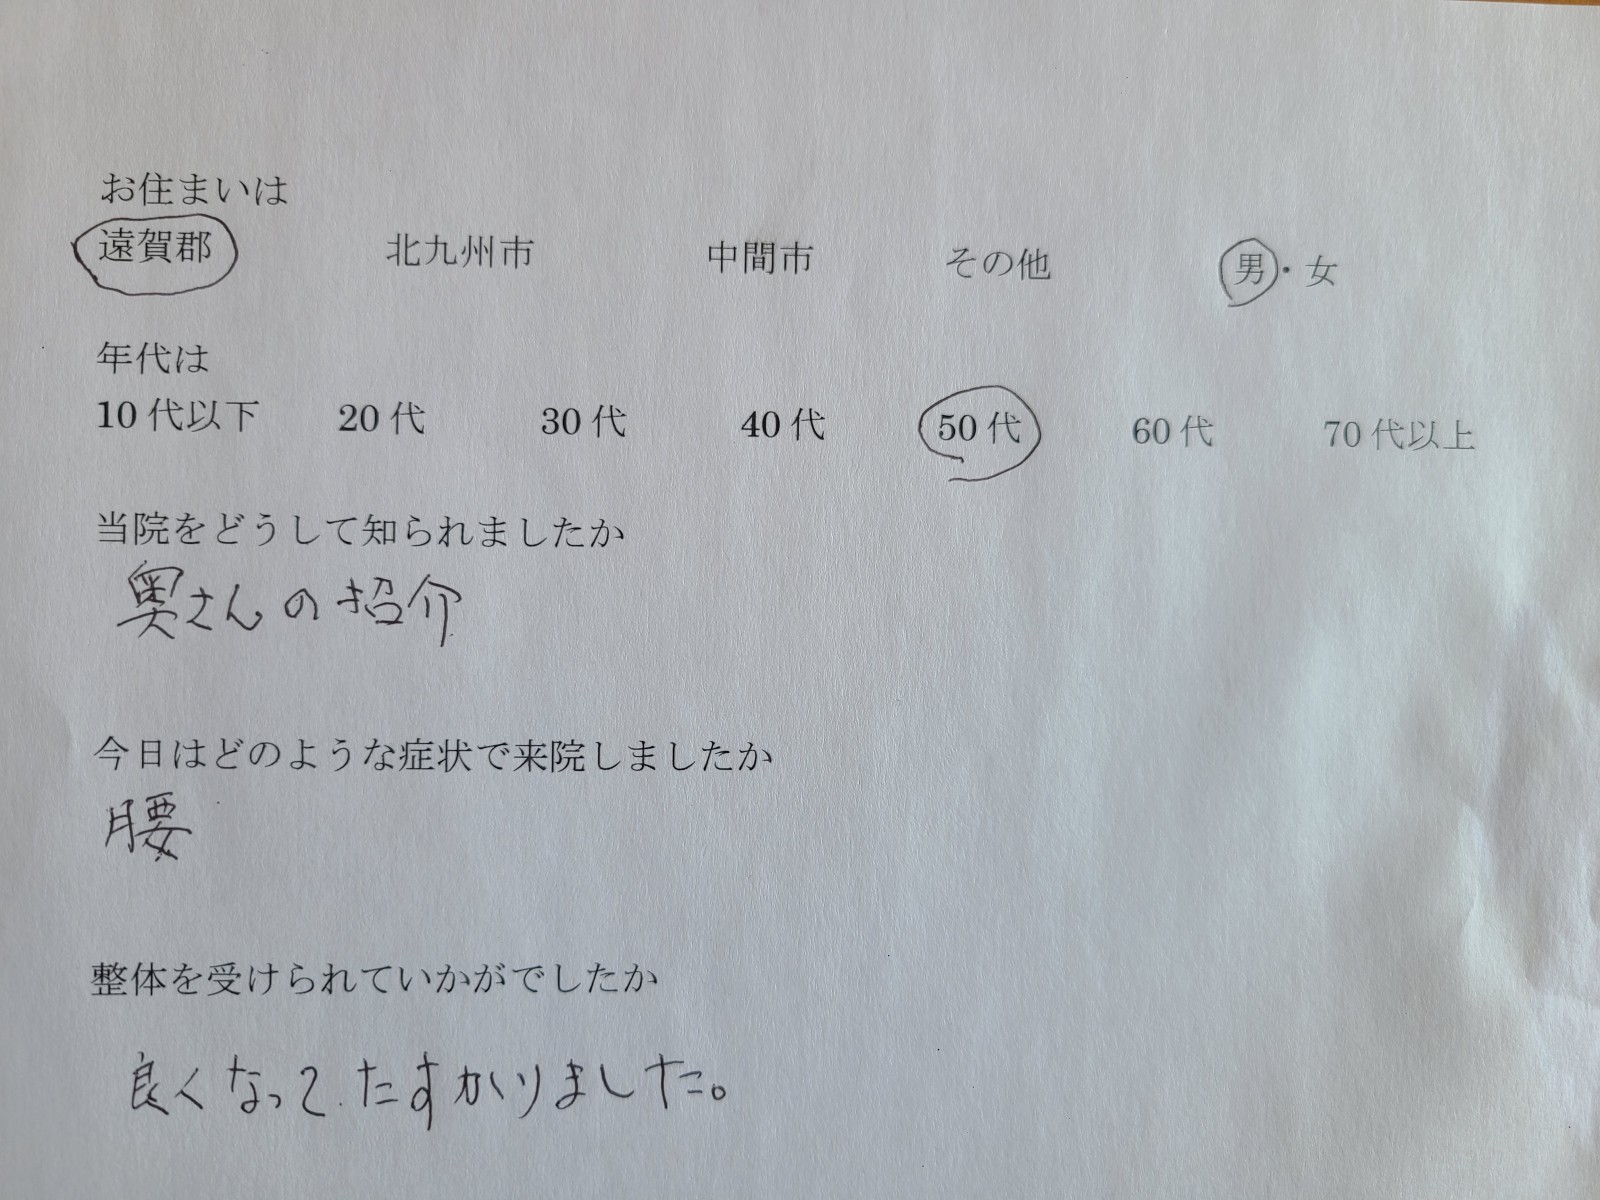 お住まいは
遠賀郡 北九州市 中間市 その他 男・女
年代は
10代以下 20代 30代 40代 50代 60代 70代以上
当院をどうして知られましたか
奥さんの紹介
今日はどのような症状で来院しましたか
腰
整体を受けられていかがでしたか
良くなって、たすかりました。